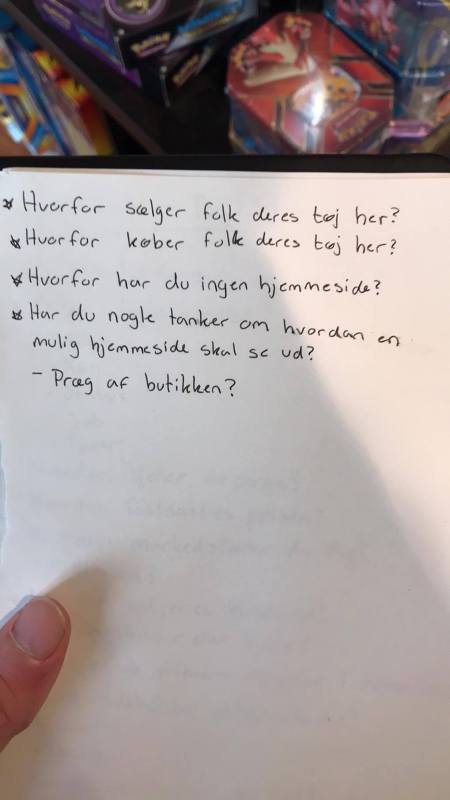 Pokémon
* Hvorfor sælger folk deres tøj her?
* Hvorfor køber folk deres tøj her?
* Hvorfor har du ingen hjemmeside?
* Har du nogle tanker om hvordan en
mulig hjemmeside skal se ud?
- Præg af butikken?